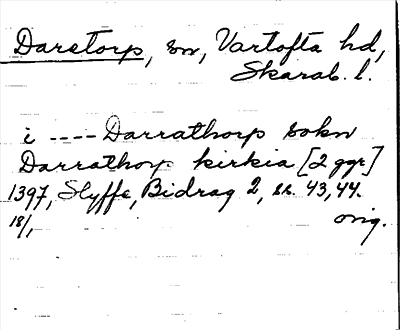 Darstorp, sn, Vartofta hd,
Skarab. l.
i ---- Darrathorp sokn
Darrathorp kirkia [2 ggr]
1397, Styffe, Bidrag 2, ss. 43, 44.
18/1 orig.